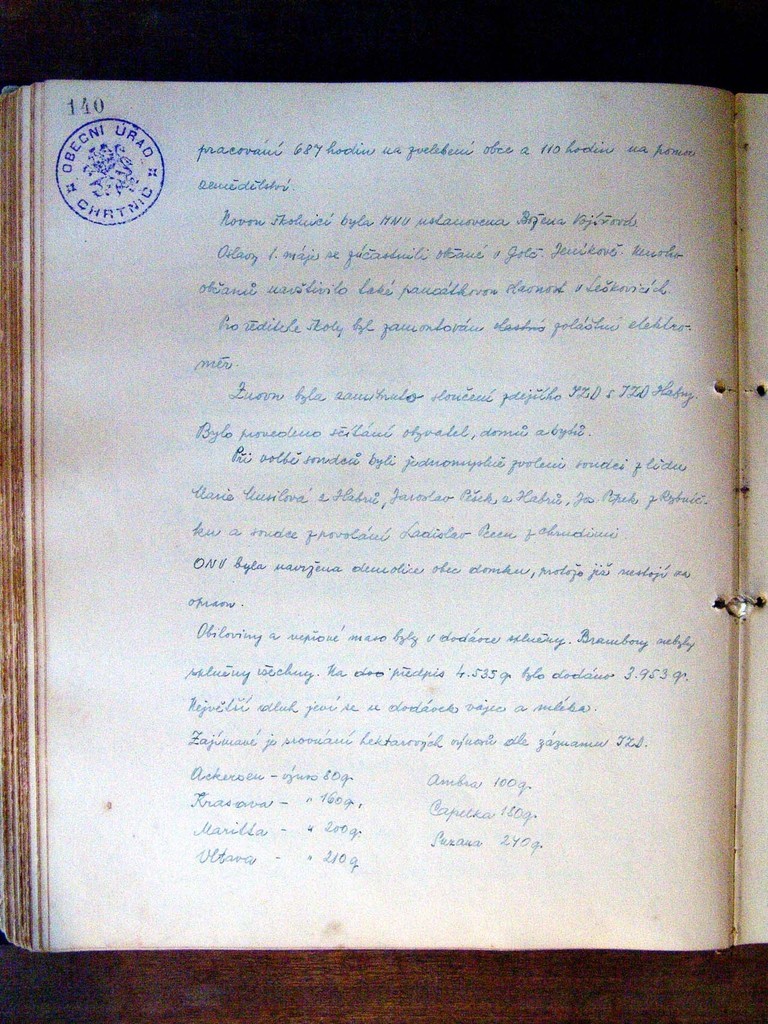 140
OBECNÍ ÚŘAD
CHRTNIČ
pracování 687 hodin na zvelebení obce a 110 hodin na pomoc
zemědělství.
Novou školnicí byla MNV ustanovena Božena
Oslavy 1. máje se zúčastnili občané v Golč. Jeníkově. Mnoho
občanů navštívilo také památkovou slavnost v Leškovicích.
Pro ředitele školy byl zamontován zvláštní elektro-
měr.
Znovu byla zamítnuto sloučení zdejšího JZD s JZD Habry.
Bylo provedeno sčítání obyvatel, domů a bytů.
Při volbě soudců byli jednomyslně zvoleni soudci z lidu
Marie Musilová z Habrů, Jaroslav Pešek z Habrů, Jos. z Rybníč-
ku a soudce z povolání Ladislav z Chrudimi
ONV byla navržena demolice obec. domku, protože již nestojí za
opravu.
Obiloviny a vepřové maso byly v dodávce splněny. Brambory nebyly
splněny všechny. Na předpis 4.535 q bylo dodáno 3.953 q.
Největší dluh jeví se u dodávek vajec a mléka.
Zajímavé je srovnání hektarových výnosů dle záznamu JZD.
Ackersen - výnos 80 q. Ambra 100 q.
Krasava - " 160 q. Capella 180 q.
Maritta - " 200 q. Suzana 240 q.
Vltava - " 210 q